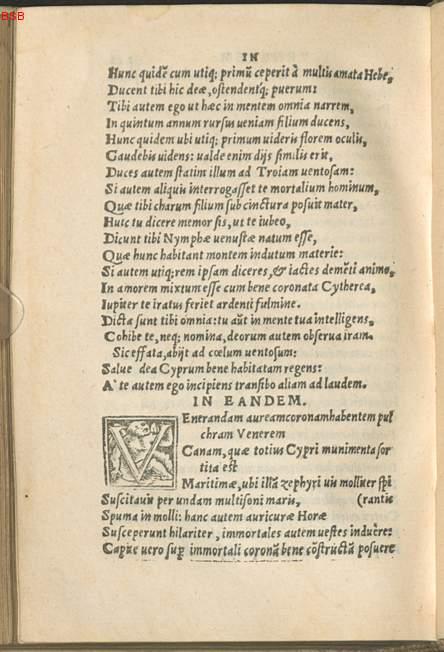 BSB
IN
Hunc quidẽ cum utiq; primũ ceperit à multis amata Hebe,
Ducent tibi hic deæ, ostendentq; puerum:
Tibi autem ego ut hæc in mentem omnia narrem,
In quintum annum rursus ueniam filium ducens,
Hunc quidem ubi utiq; primum uideris florem oculis,
Gaudebis uidens: ualde enim dijs similis erit,
Duces autem statim illum ad Troiam uentosam:
Si autem aliquis interrogasset te mortalium hominum,
Quæ tibi charum filium sub cinctura posuit mater,
Huic tu dicere memor sis, ut te iubeo,
Dicunt tibi Nymphæ uenustæ natum esse,
Quæ hunc habitant montem indutum materie:
Si autem utiq; rem ipsam diceres, & iactes demẽti animo,
In amorem mixtum esse cum bene coronata Cytherea,
Iupiter te iratus feriet ardenti fulmine.
Dicta sunt tibi omnia: tu aũt in mente tua intelligens,
Cohibe te, neq; nomina, deorum autem obserua iram.
Sic effata, abijt ad cœlum uentosum:
Salue dea Cyprum bene habitatam regens:
A' te autem ego incipiens transibo aliam ad laudem.
IN EANDEM.
VEnerandam auream coronam habentem pul
chram Venerem
Canam, quæ totius Cypri munimenta sor
tita est
Maritimæ, ubi illã zephyri uis molliter spi
Suscitauit per undam multisoni maris, (rantis
Spuma in molli: hanc autem auricuræ Horæ
Susceperunt hilariter, immortales autem uestes induêre:
Capite uero sup immortali coronã bene cõstructã posuere